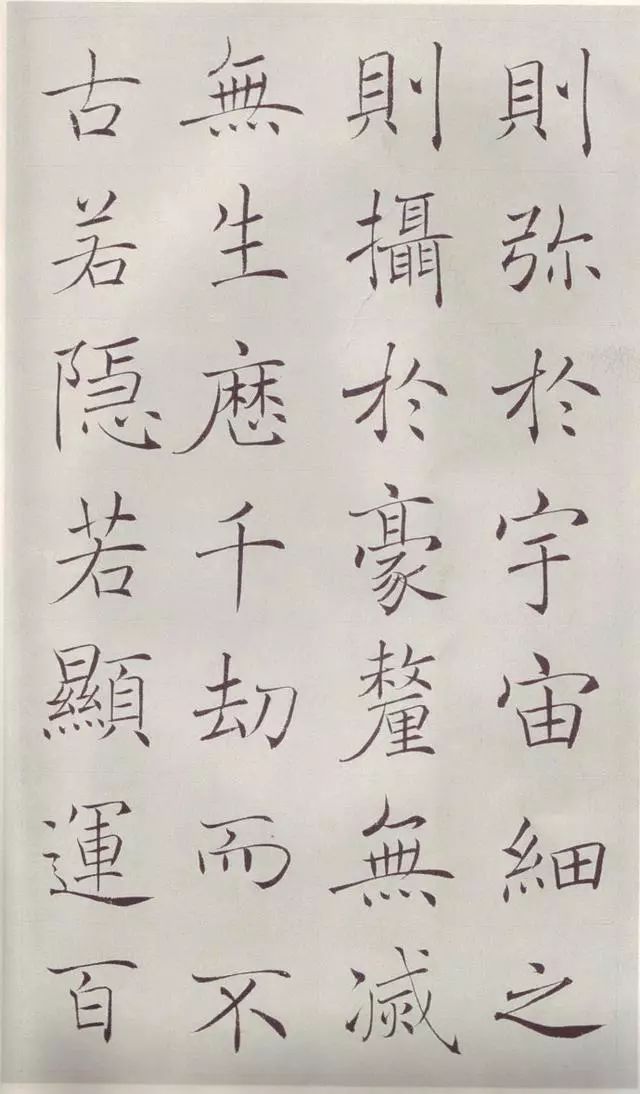 則弥於宇宙細之
則攝於豪釐無滅
無生歷千劫而不
古若隠若顯運百